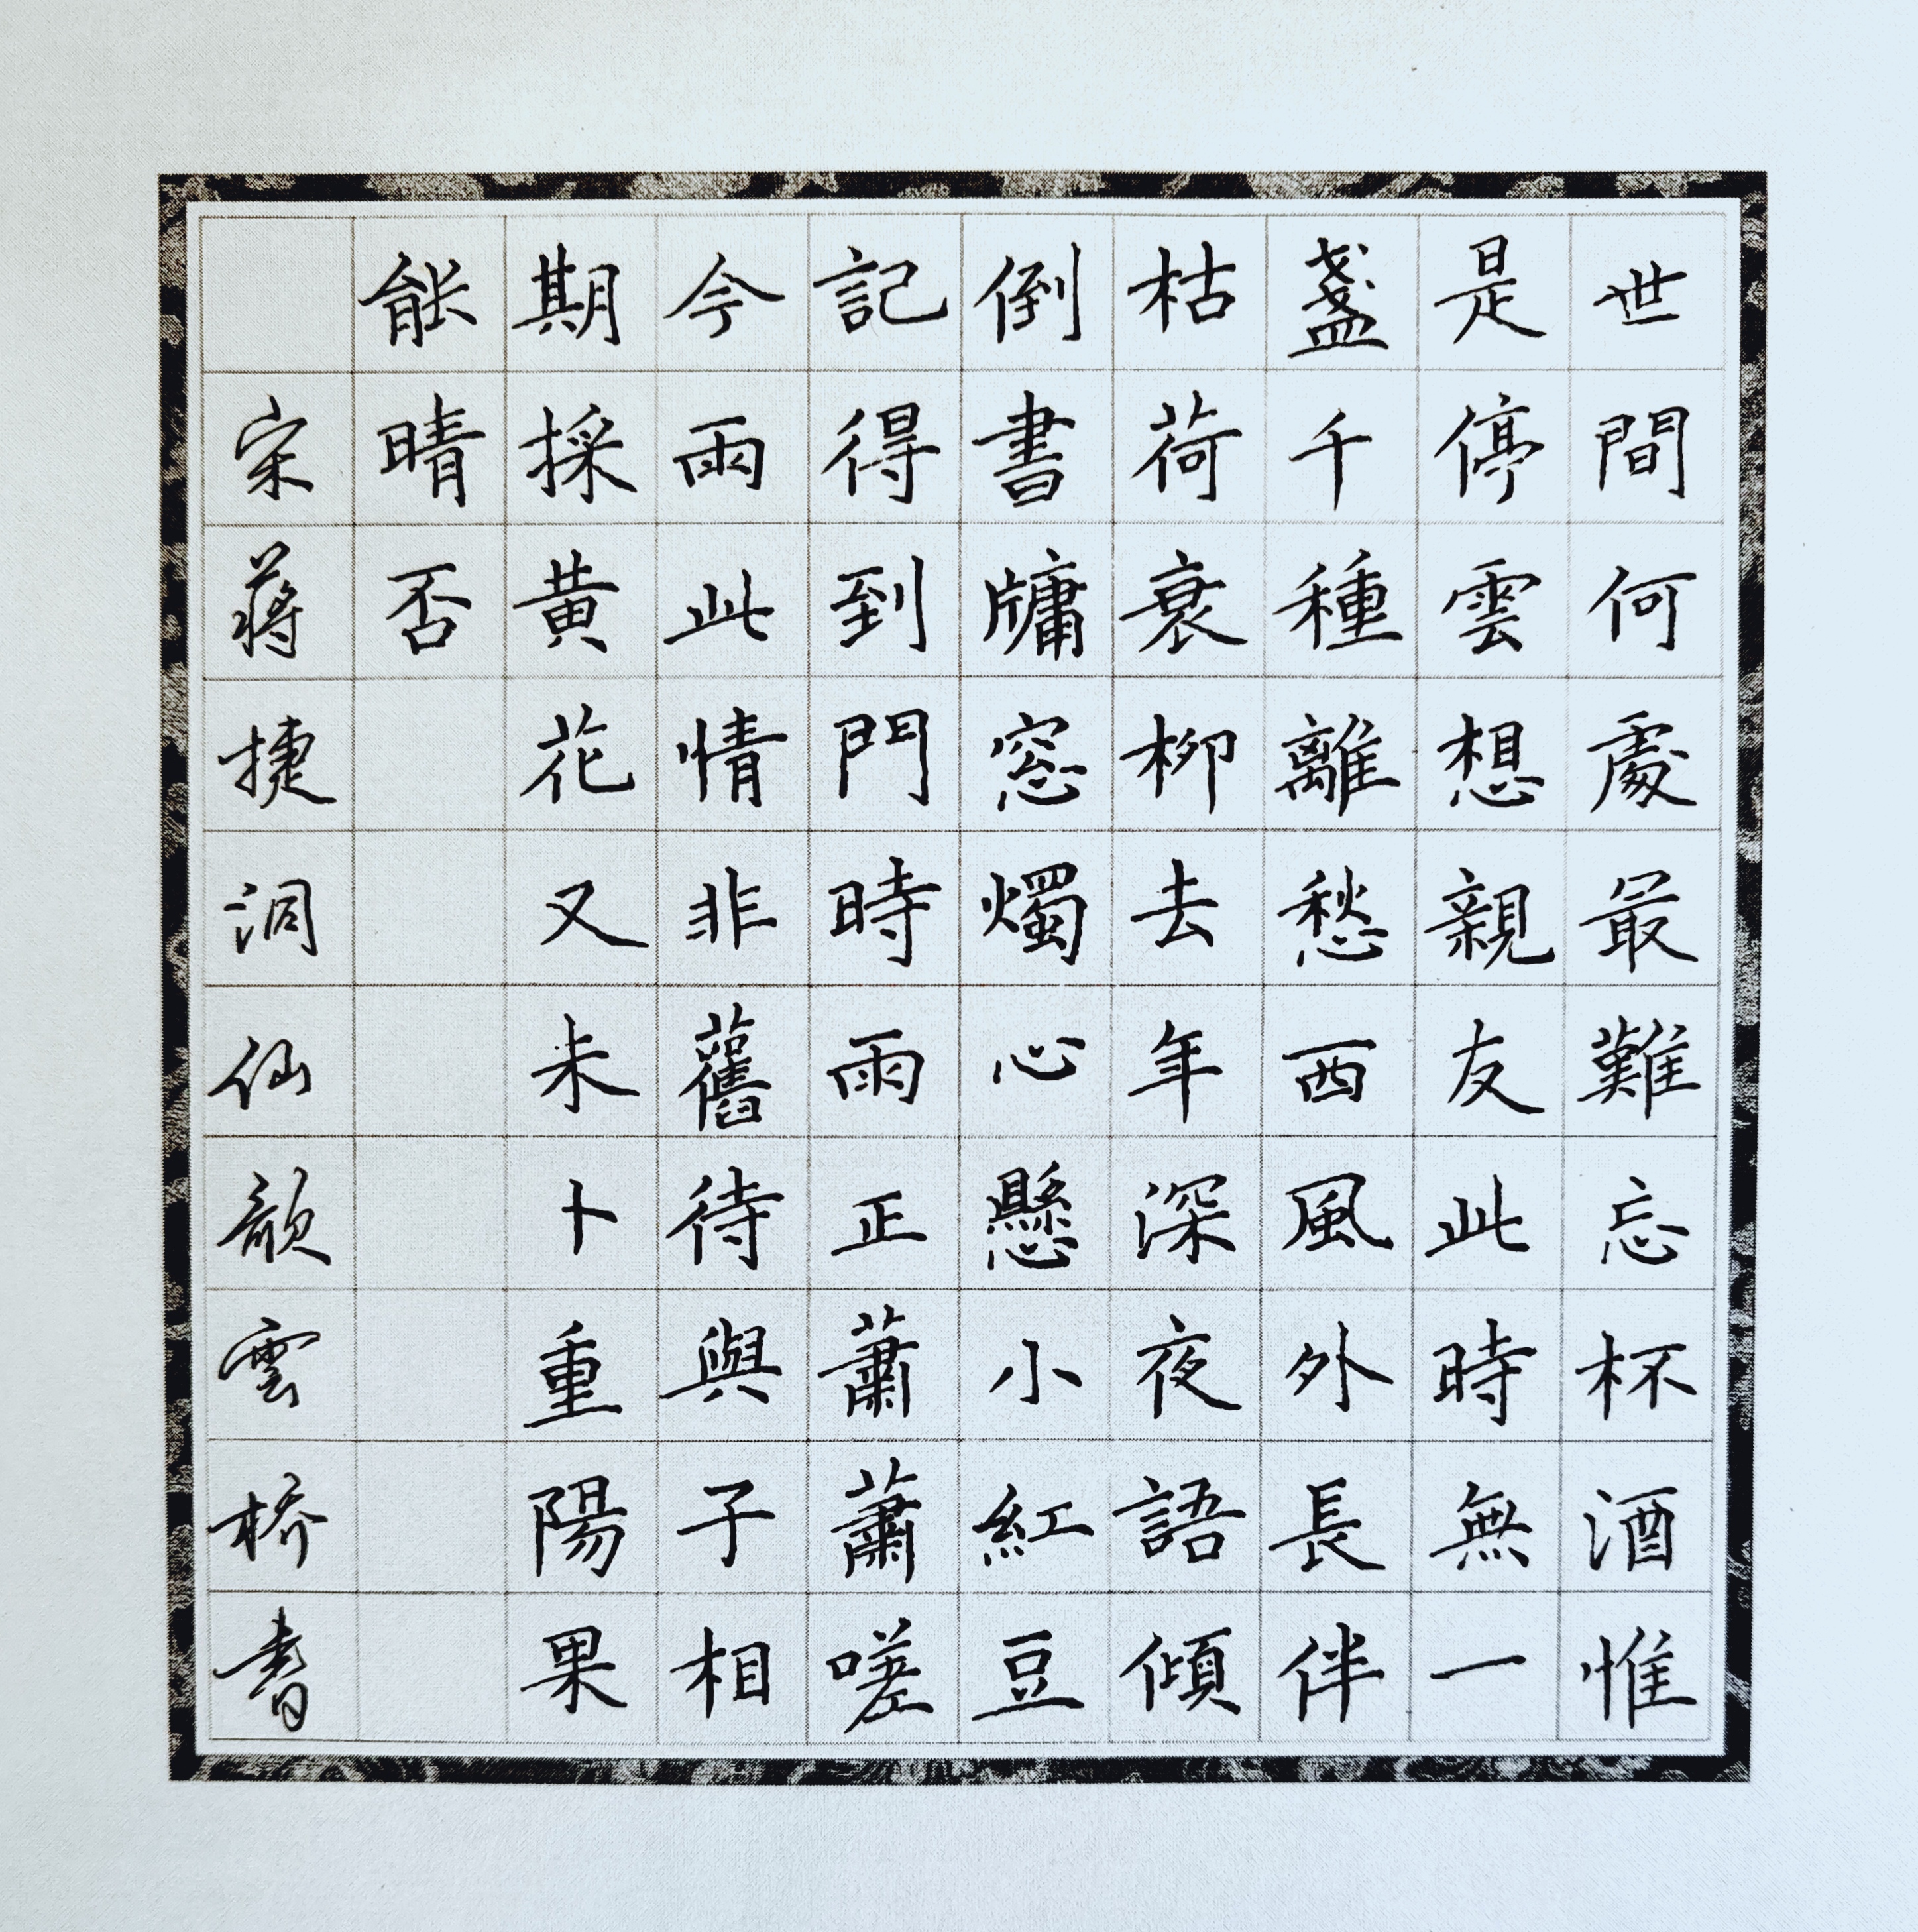 世間何處最難忘杯酒惟
是停雲想親友此時無一
盞千種離愁西風外長伴
枯荷衰柳去年深夜語傾
倒書牗窓燭心懸小紅豆
記得到門時雨正蕭蕭嗟
今雨此情非舊待與子相
期採黄花又未卜重陽果
能晴否
宋蔣捷洞仙歌雲桥書